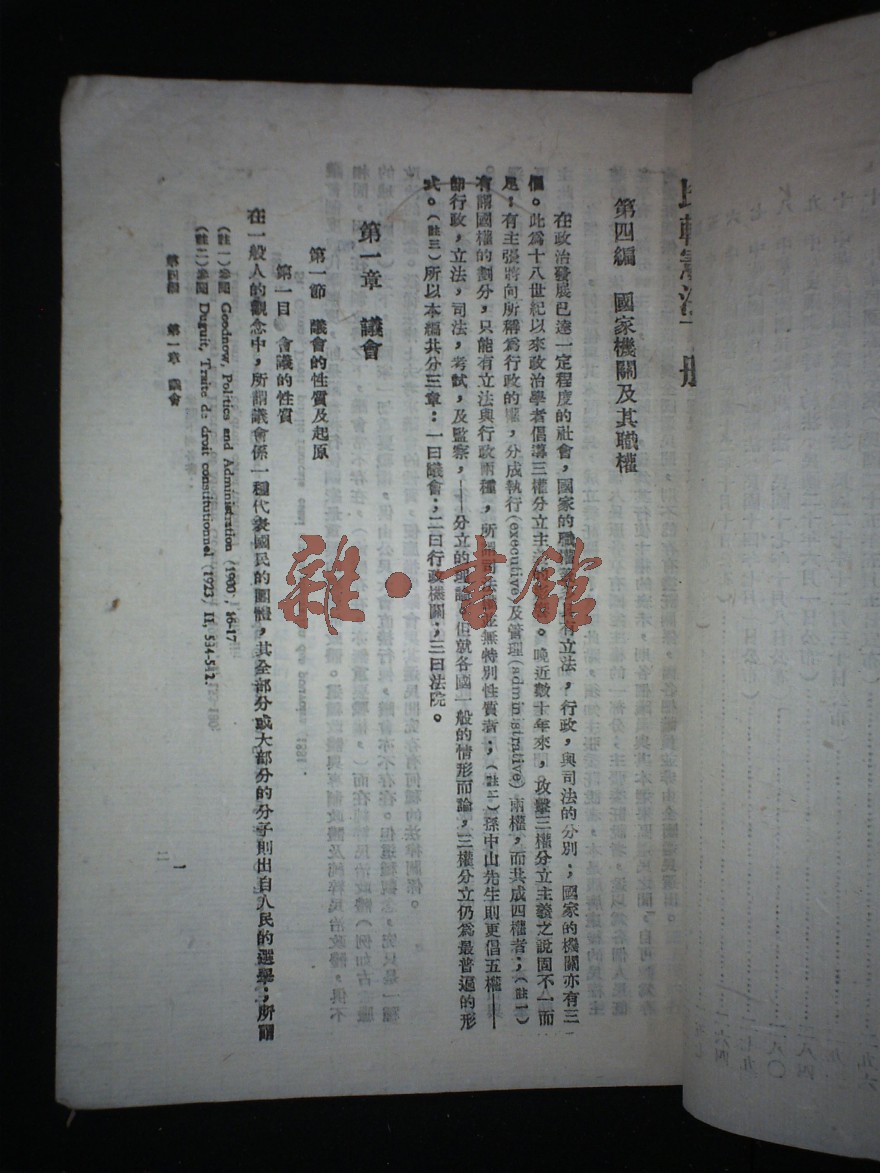 第四編　國家機關及其職權
在政治發展已達一定程度的社會，國家的職權
有立法，行政，與司法的分別；國家的機關亦有三
個。此爲十八世紀以來政治學者倡導三權分立主
。晚近數十年來，攻擊三權分立主義之說固不一而
足：有主張將向所稱爲行政的權，分成執行(executive)及管理(administrative)兩權，而共成四權者；（註一）
有謂國權的劃分，只能有立法與行政兩種，所謂司法
並無特別性質者；（註二）孫中山先生則更倡五權——
卽行政，立法，司法，考試，及監察，——分立的理論。但就各國一般的情形而論，三權分立仍爲最普遍的形
式。（註三）所以本編共分三章：一曰議會；二曰行政機關；三曰法院。
第一章　議會
第一節　議會的性質及起原
第一目　會議的性質
在一般人的觀念中，所謂議會係一種代表國民的團體，其全部分或大部分的分子則出自人民的選舉；所謂
（註一）參閱 Goodnow, Politics and Administration (1900), 16-17
（註二）參閱 Duguit, Traite de droit constitutionnel (1923) II,
第四編　第一章　議會
一
雜·書館